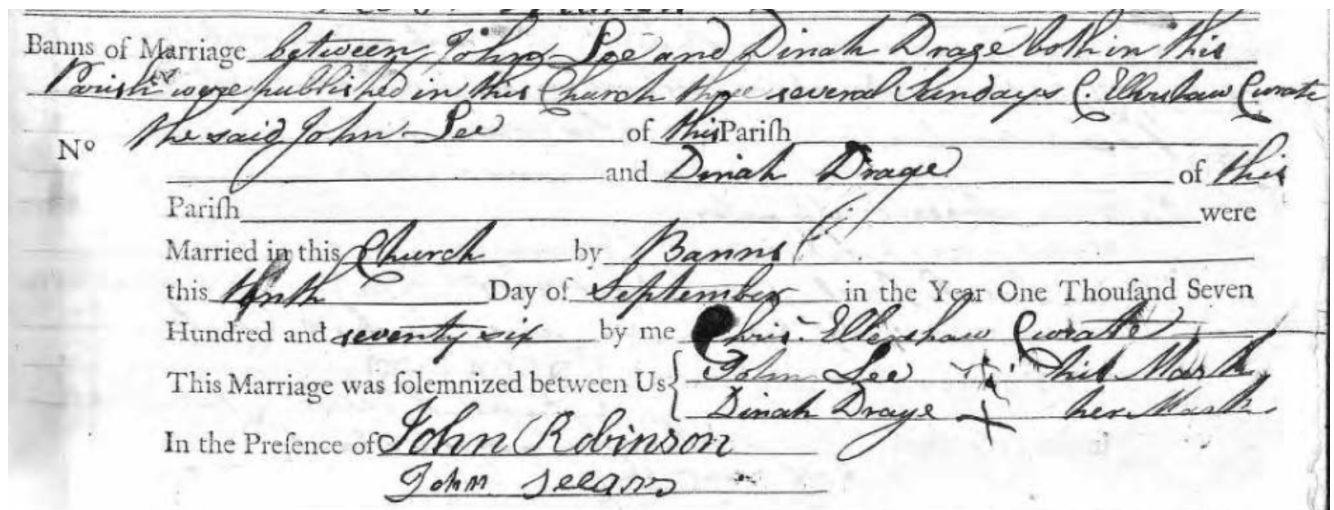 Banns of Marriage between John Lee and Dinah Drage both in this
Parish were published in this Church three several Sundays C. Ellershaw Curate
No the said John Lee of this Pariſh
and Dinah Drage of this
Pariſh were
Married in this Church by Banns
this tenth Day of September in the Year One Thouſand Seven
Hundred and seventy six by me Chris: Ellershaw Curate
This Marriage was ſolemnized between Us { John Lee X his Mark
Dinah Drage X her Mark
In the Preſence of John Robinson
John